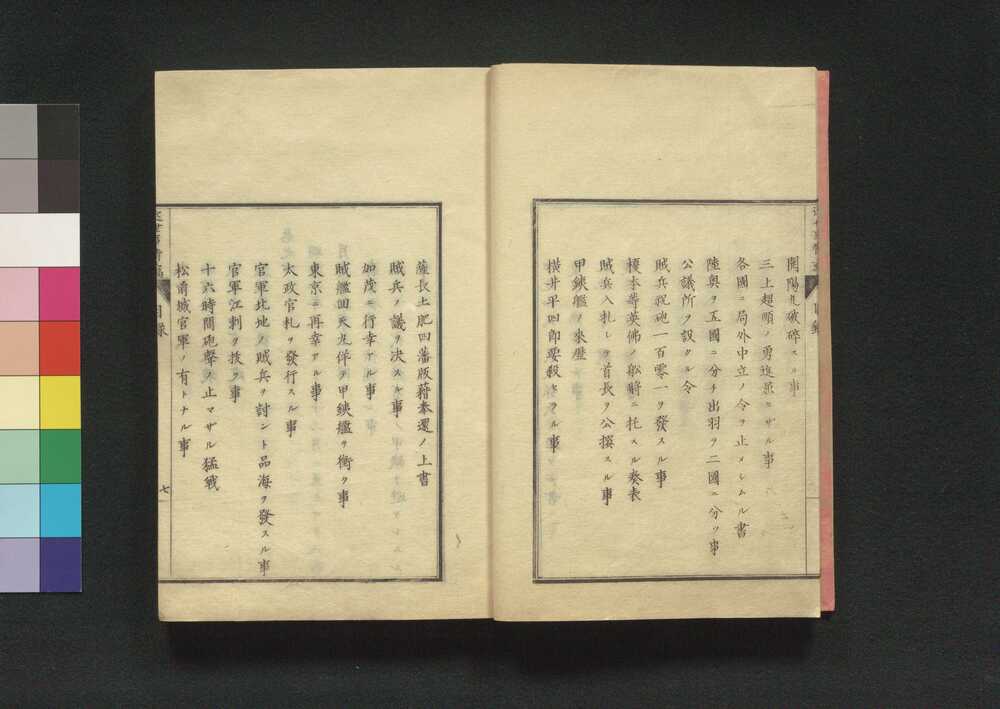 開陽丸破碎スル事
三上超順ノ勇進悪セザル事
各國ニ局外中立ノ令ヲ止メシムル書
陸奥ヲ五國ニ分チ出羽ヲ二國ニ分ツ事
公議所ヲ設クル令
賊兵祝砲一百零一ヲ發スル事
榎本等英佛ノ船將ニ托スル奏表
賊兵入札シテ首長ヲ公撰スル事
甲鉄艦ノ来歴
横井平四郎要殺セラル事
薩長土肥四藩版籍奉還ノ上書
賊兵ノ議ヲ决スル事
加茂ニ行幸アル事
賊艦回天丸伴テ甲鉄艦ヲ衝ク事
東京ニ再幸アル事
太政官札ヲ發行スル事
官軍北地ノ賊兵ヲ討ント品海ヲ發スル事
官軍江刺ヲ抜ク事
十六時間砲撃ノ止マザル猛戦
松前城官軍ノ有トナル事
目録
七